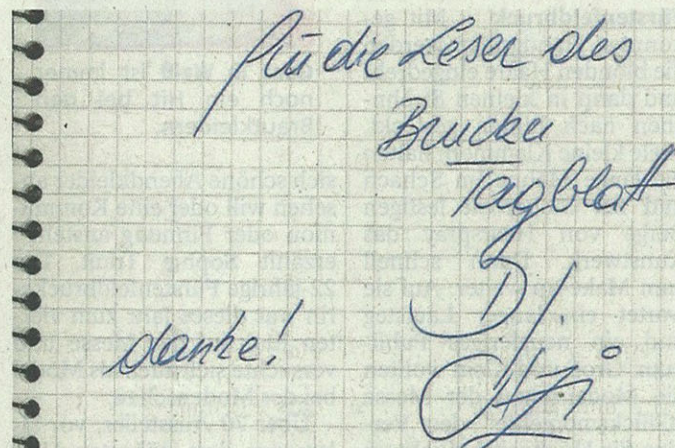 für die Leser des
Brucker
Tagblatt
danke!